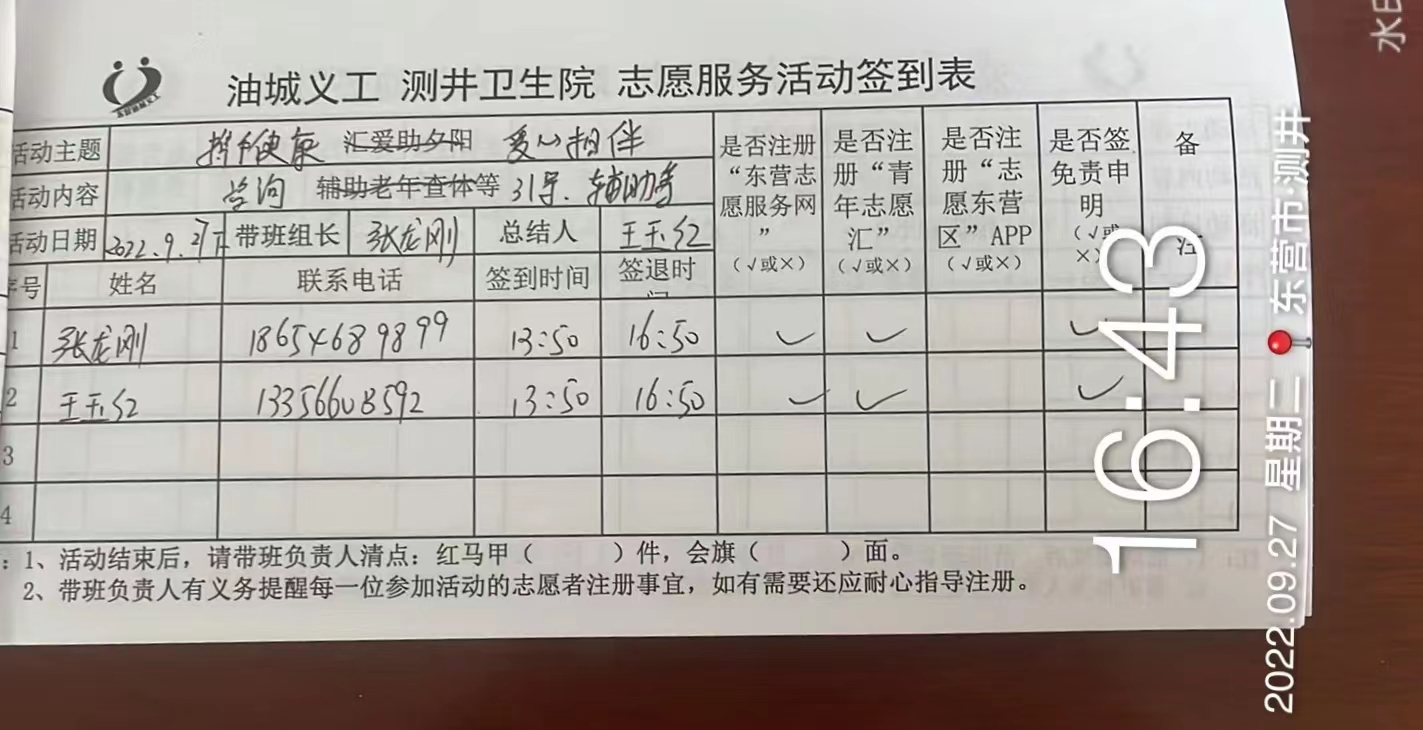 油城义工 测井卫生院 志愿服务活动签到表
活动主题 健康 汇爱助夕阳 爱心相伴
活动内容 咨询 辅助老年查体等 引导、辅助等
活动日期 2022.9.27下 带班组长 张龙刚 总结人 王玉红
是否注册“东营志愿服务网”(√或×)
是否注册“青年志愿汇”(√或×)
是否注册“志愿东营区”APP(√或×)
是否签免责申明(√或×)
备注
序号 姓名 联系电话 签到时间 签退时间
1 张龙刚 18654689899 13:50 16:50 ✓ ✓ ✓
2 王玉红 13:50 16:50 ✓ ✓ ✓
3
4
：1、活动结束后，请带班负责人清点：红马甲（ ）件，会旗（ ）面。
2、带班负责人有义务提醒每一位参加活动的志愿者注册事宜，如有需要还应耐心指导注册。
16:43
2022.09.27 星期二 东营市测井
水印